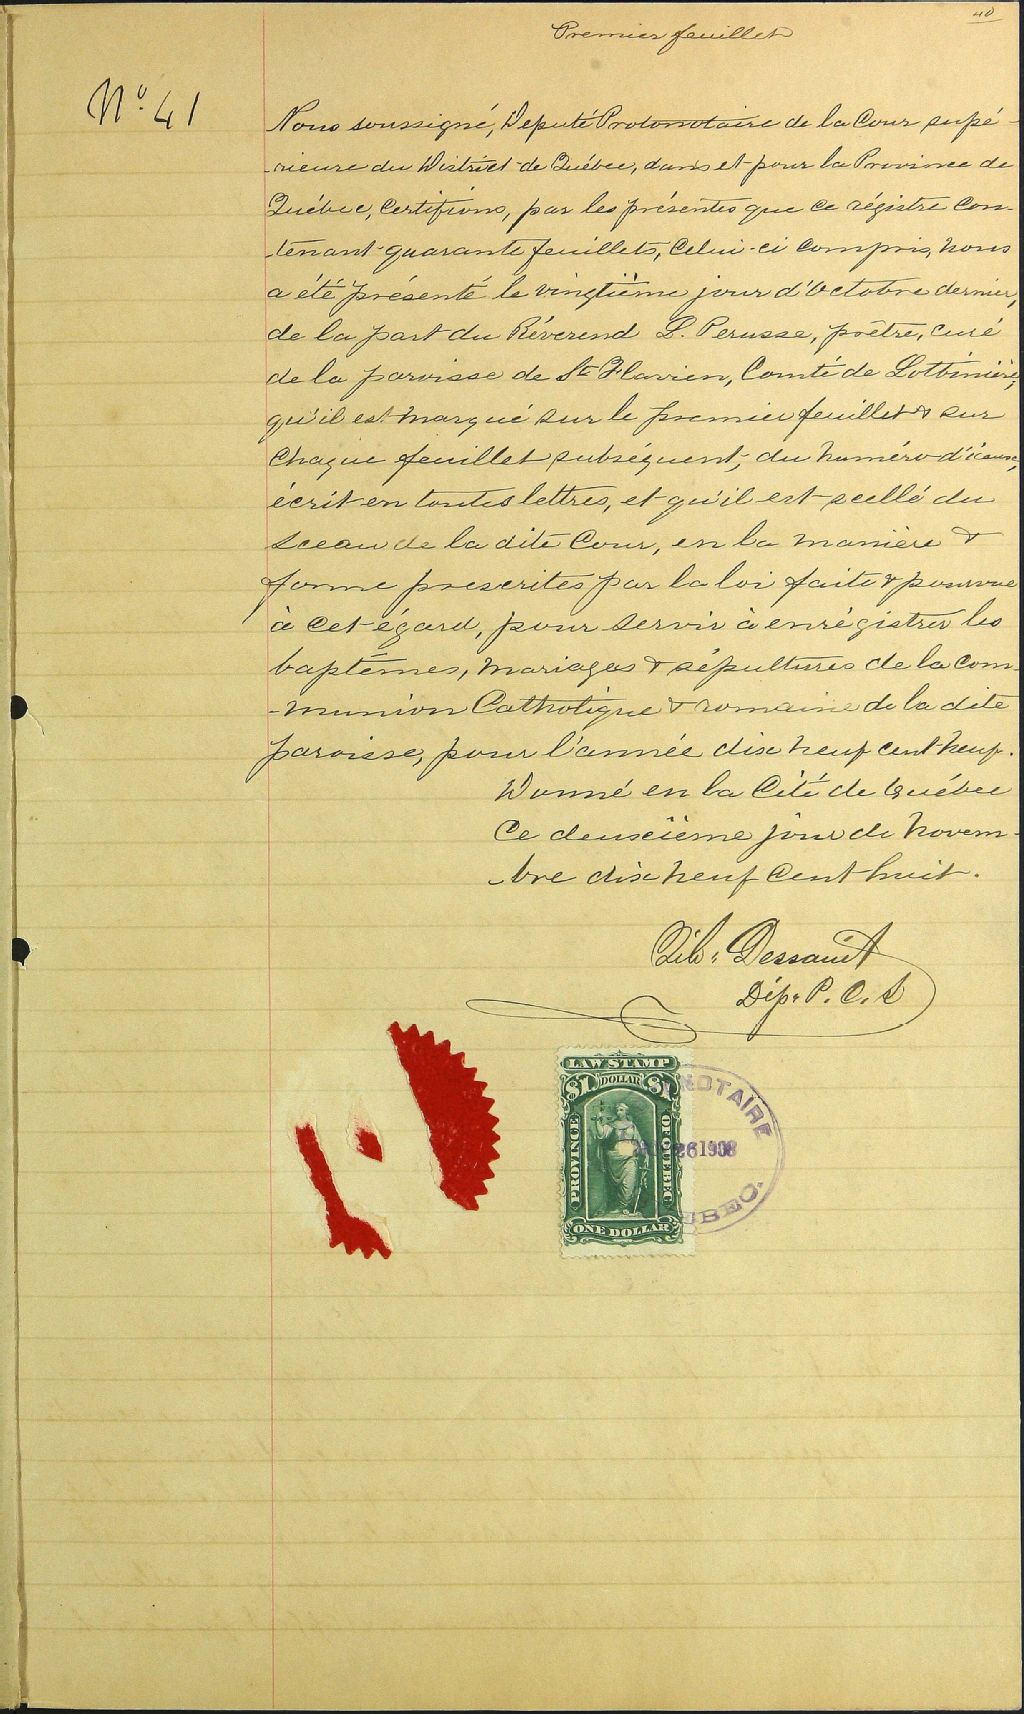 40
Premier feuillet
No. 41
Nous soussigné, Député Protonotaire de la Cour supé-
-rieure du District de Québec, dans et pour la Province de
Québec, Certifions, par les présentes que ce régistre con-
-tenant quarante feuillets, Celui-ci compris, nous
a été présenté le vingtième jour d'Octobre dernier,
de la part du Révérend L. Perusse, prêtre, curé
de la paroisse de St Flavien, Comté de Lotbinière,
qu'il est marqué sur le premier feuillet & sur
chaque feuillet subséquent, du numéro d'iceux,
écrit en toutes lettres, et qu'il est scellé du
sceau de la dite Cour, en la manière &
forme prescrites par la loi faite & pourvue
à cet égard, pour servir à enrégistrer les
baptêmes, mariages & sépultures de la com-
-munion Catholique & romaine de la dite
paroisse, pour l'année dix neuf cent neuf.
Donné en la Cité de Québec
Ce deuxième jour de novem-
-bre dix neuf cent huit.
Dessault
Dép. P. C. S
LAW STAMP
$1 DOLLAR $1
PROVINCE OF QUEBEC
ONE DOLLAR
NOTAIRE
26 1908
BEC